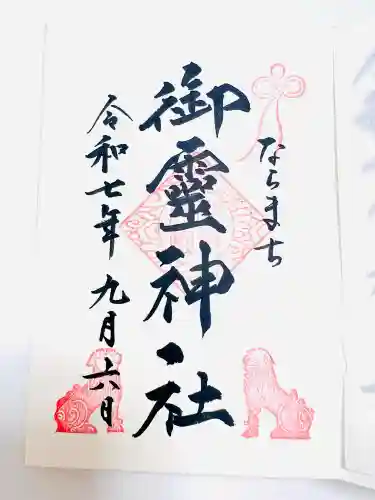 ならまち
御靈神社
令和七年九月六日